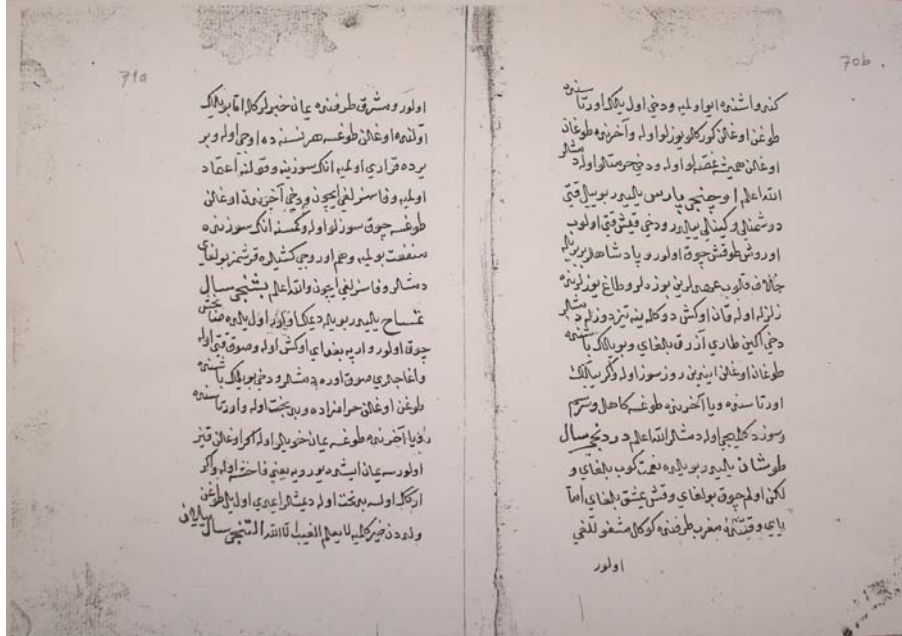 70b
كندو اشنده ايو اولميه ودخي اول ييلك اورتاسنده
طوغن اوغلان كوركلو يوزلو اوله وآخرنده طوغان
اوغلان هميشه غصه لو اوله ودخي حرمتلو اوله ديمشلر
الله اعلم اوچنجي پارس ييليدر بو ييل قتي
دوشمنلي وكينلي ييلدر ودخي قيش قتي اولوب
اوروش طوقش چوق اولور و پادشاهلر بربريله
خلاف قلوب عهدلرين بوزه لر وطاغ يوزلرنده
زلزله اوله قان اوكش دوكله ينه تيز دوزله ديمشلر
دخي اكين طاري آزرق بلغاي وبو ييلك باشنده
طوغان اوغلان روزسوز اوله واكر ييلك
اورتاسنده ويا آخرنده طوغسه كاهل و
وسوزدكليجي اوله ديمشلر الله اعلم دردنجي سال
طوشان ييليدر بو ييلده نعمت كوب بلغاي و
لكن اولم چوق بولغاي وقش عشق بلغاي اما
ياي وقيشده مغرب طرفنده كوكل مشغوللغي
اولور
71a
اولور ومشرق طرفنده يمان خبرلر كله اما بو ييلك
اولنده اوغلان طوغسه هر نسنه ده اوجي اوله وبر
يرده قراري اولميه انك سوزينه وقولنه اعتماد
اولميه وفاسزلغي ايچون ودخي آخرنده اوغلان
طوغسه چوق سوزلو اوله وكمسنه انك سوزنده
منفعت بولميه وهم اوروجي كشيلره قرشمز بولغاي
ديمشلر وفاسزلغي ايچون والله اعلم بشنجي سال
تمساح ييليدر بو ييلده ديمك اولور اول ييلده
چوق اولور وارپه بغداي اوكش اوله وصوق قتي اوله
واغاجلري صوق اوره ديمشلر ودخي بو ييلك باشنده
طوغن اوغلان حرامزاده وبي بخت اوله واورتاسنده
ويا آخرنده طوغسه يمان خويلو اوله اكر اوغلان قيز
اولورسه يمان ايشده يوريه يعني فاحشه اوله واكر
اركك اولسه بي بخت اوله ديمشلر اول ييل طوغن
ولددن خير كلميه لا يعلم الغيب الا الله التنجي سال ييلان